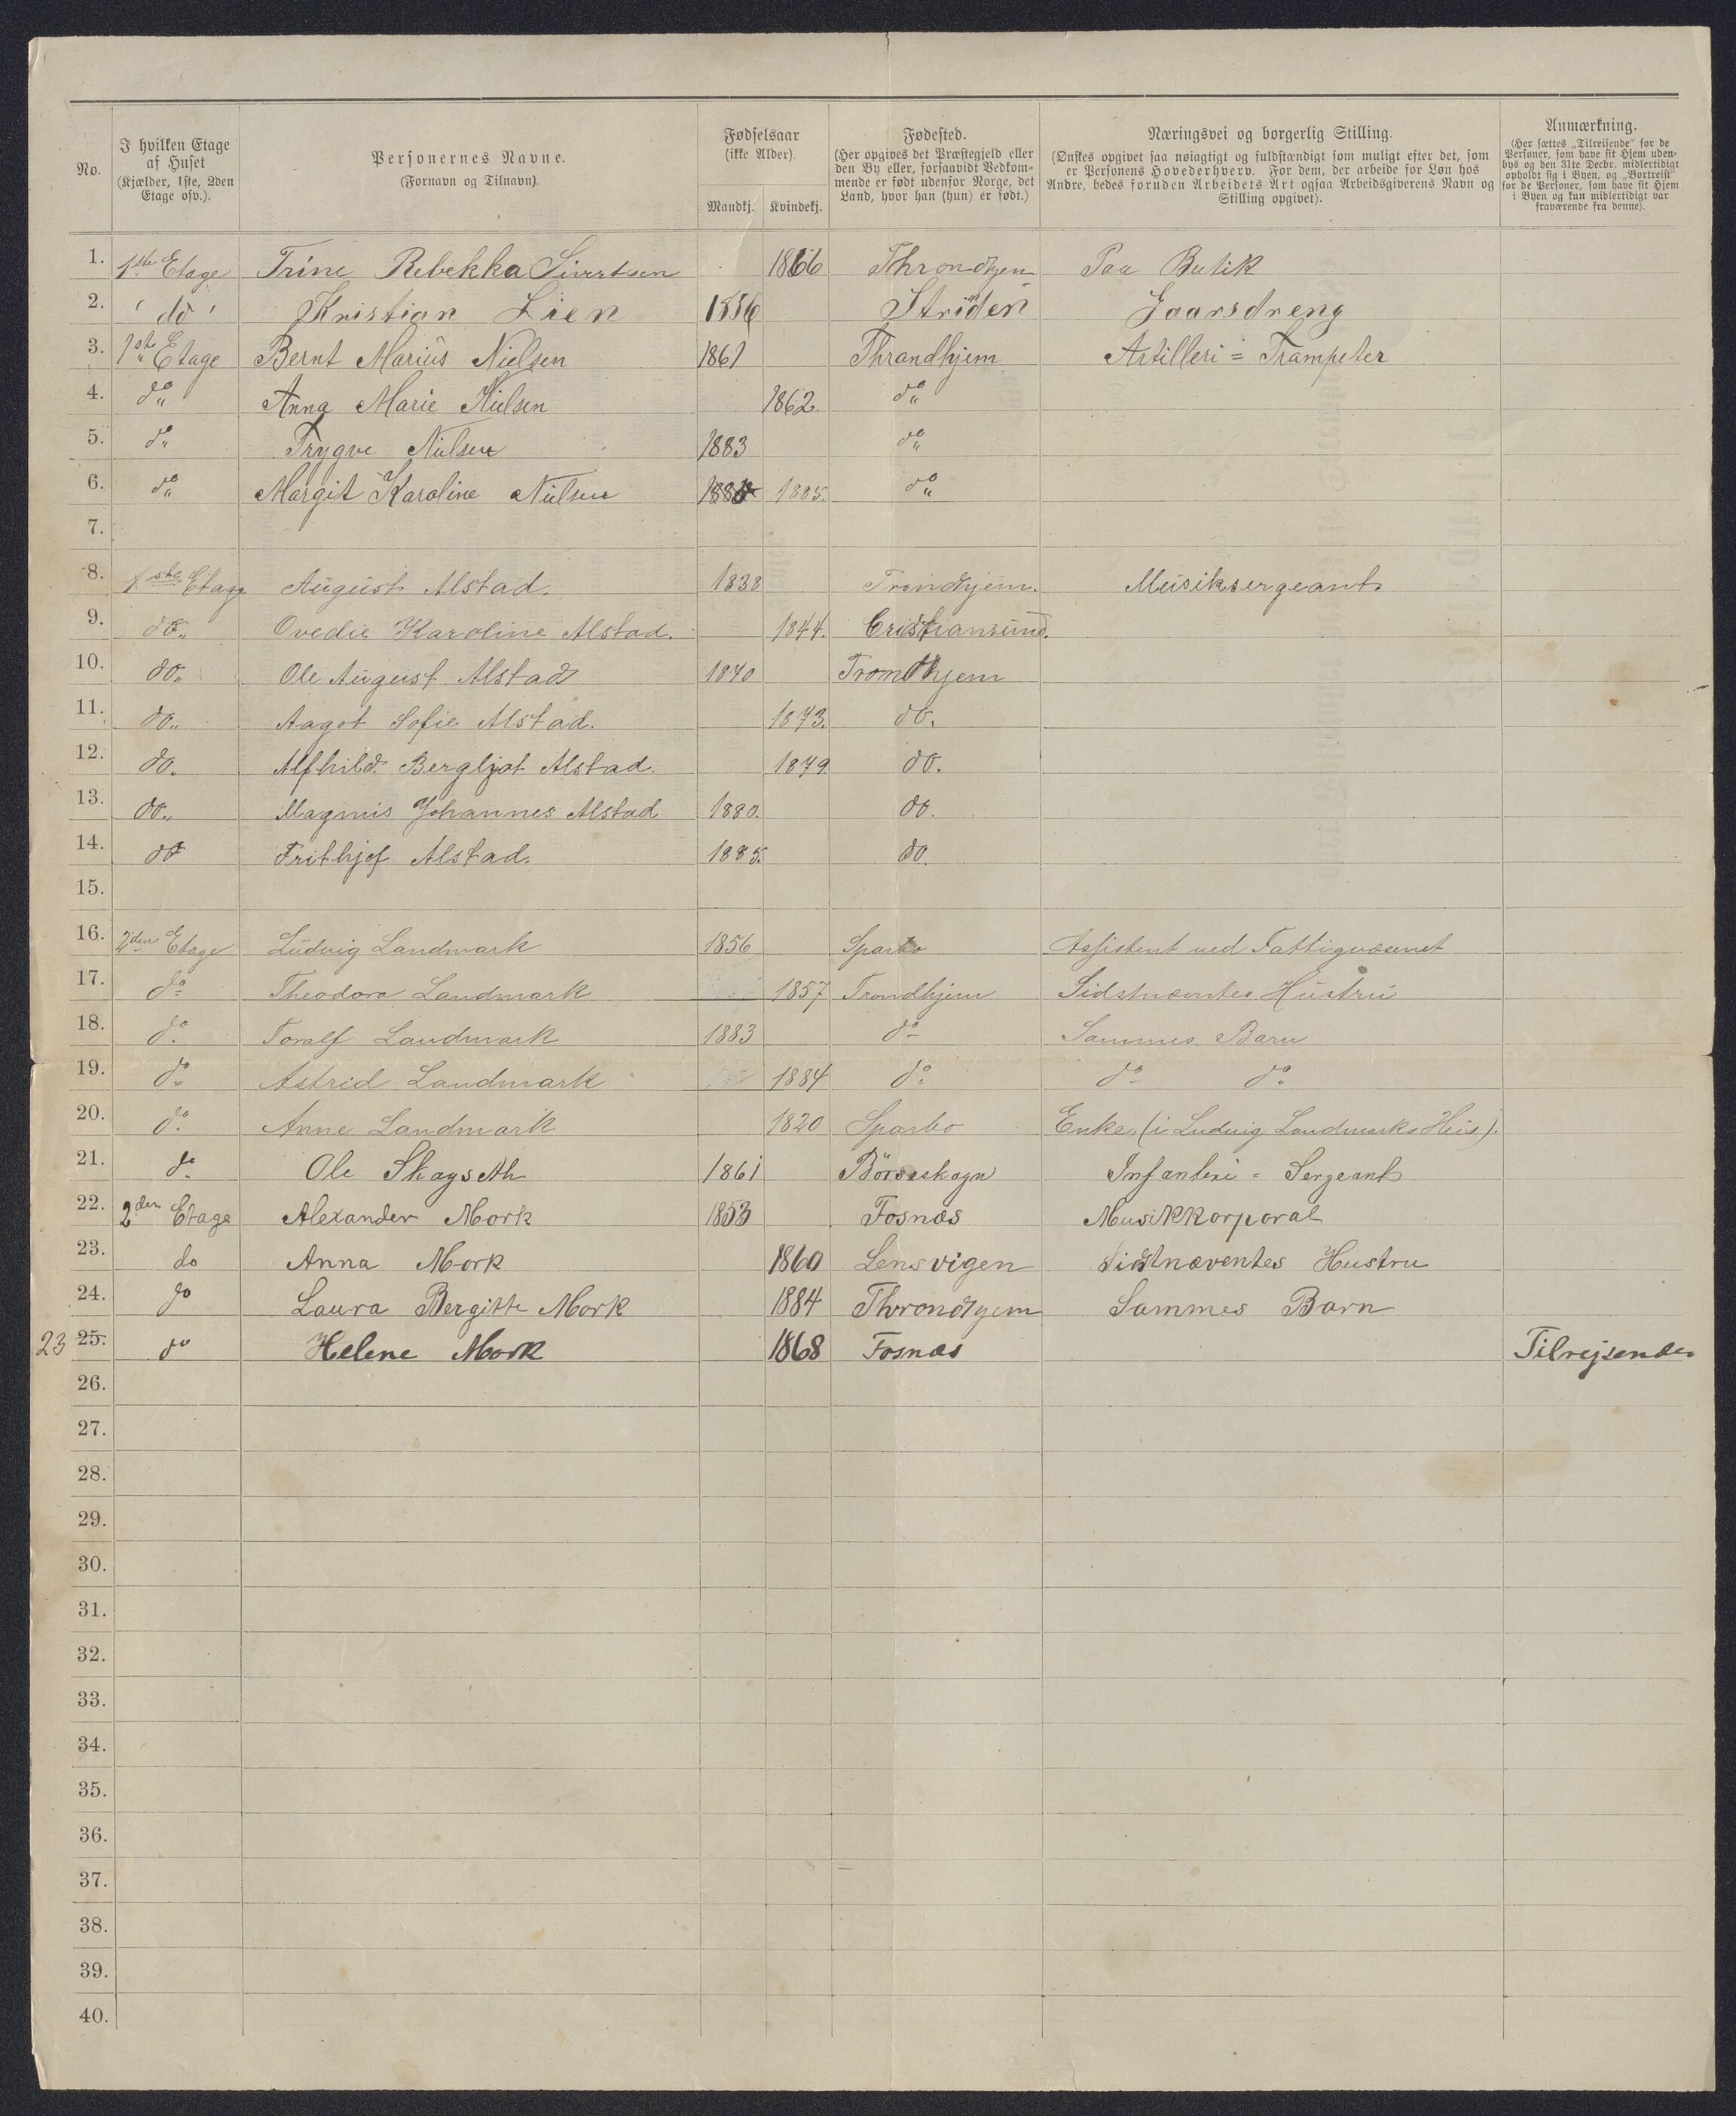 No.
I hvilken Etage af Huset (Kjælder, 1ste, 2den Etage osv.).
Personernes Navne. (Fornavn og Tilnavn).
Fødselsaar (ikke Alder). Mandkj. Kvindekj.
Fødested. (Her opgives det Præstegjeld eller den By eller, forsaavidt Vedkommende er født udenfor Norge, det Land, hvor han (hun) er født.)
Næringsvei og borgerlig Stilling. (Ønskes opgivet saa nøiagtigt og fuldstændigt som muligt efter det, som er Personens Hovederhverv. For dem, der arbeide for Løn hos Andre, bedes foruden Arbeidets Art ogsaa Arbeidsgiverens Navn og Stilling opgivet).
Anmærkning. (Her sættes „Tilreisende" for de Personer, som have sit Hjem udenbys og den 31te Decbr. midlertidigt opholdt sig i Byen, og „Bortreist" for de Personer, som have sit Hjem i Byen og kun midlertidigt var fraværende fra denne).
1. 1ste Etage Trine Rebekka Sivertsen 1866 Throndhjem Paa Butik
2. " do " Kristian Lien 1856 Strinden Gaarsdreng
3. 1ste Etage Bernt Marius Nielsen 1861 Thrandhjem Artilleri = Trampeter
4. do Anna Marie Nielsen 1862. do
5. do Trygve Nielsen 1883 do
6. do Margit Karoline Nielsen 1885. do
7.
8. 1ste Etage August Alstad. 1838 Trondhjem. Musiksergeant.
9. do„ Ovedie Karoline Alstad. 1844. Cristiansund.
10. do„ Ole August Alstad 1870 Trondhjem
11. do„ Aagot Sofie Alstad. 1873. do.
12. do. Alfhild Bergljot Alstad. 1879 do.
13. do„ Magnus Johannes Alstad 1880. do.
14. do Frithjof Alstad. 1885. do.
15.
16. 2den Etage Ludvig Landmark 1856 Sparbo Assistent ved Fattigvæsenet
17. do Theodora Landmark 1857 Trondhjem Sidstnævntes Hustru
18. do. Toralf Landmark 1883 do Sammes Barn
19. do Astrid Landmark 1884 do. do do.
20. do. Anne Landmark 1820 Sparbo Enke, (i Ludvig Landmarks Hus).
21. do. Ole Skagseth 1861 Börseskogn Infanteri = Sergeant
22. 2den Etage Alexander Mork 1853 Fosnæs Musikkorporal
23. do Anna Mork 1860 Lensvigen Sidstnæventes Hustru
24. do Laura Bergitte Mork 1884 Throndhjem Sammes Barn
23 25. do Helene Mork 1868 Fosnæs Tilrejsende
26.
27.
28.
29.
30.
31.
32.
33.
34.
35.
36.
37.
38.
39.
40.